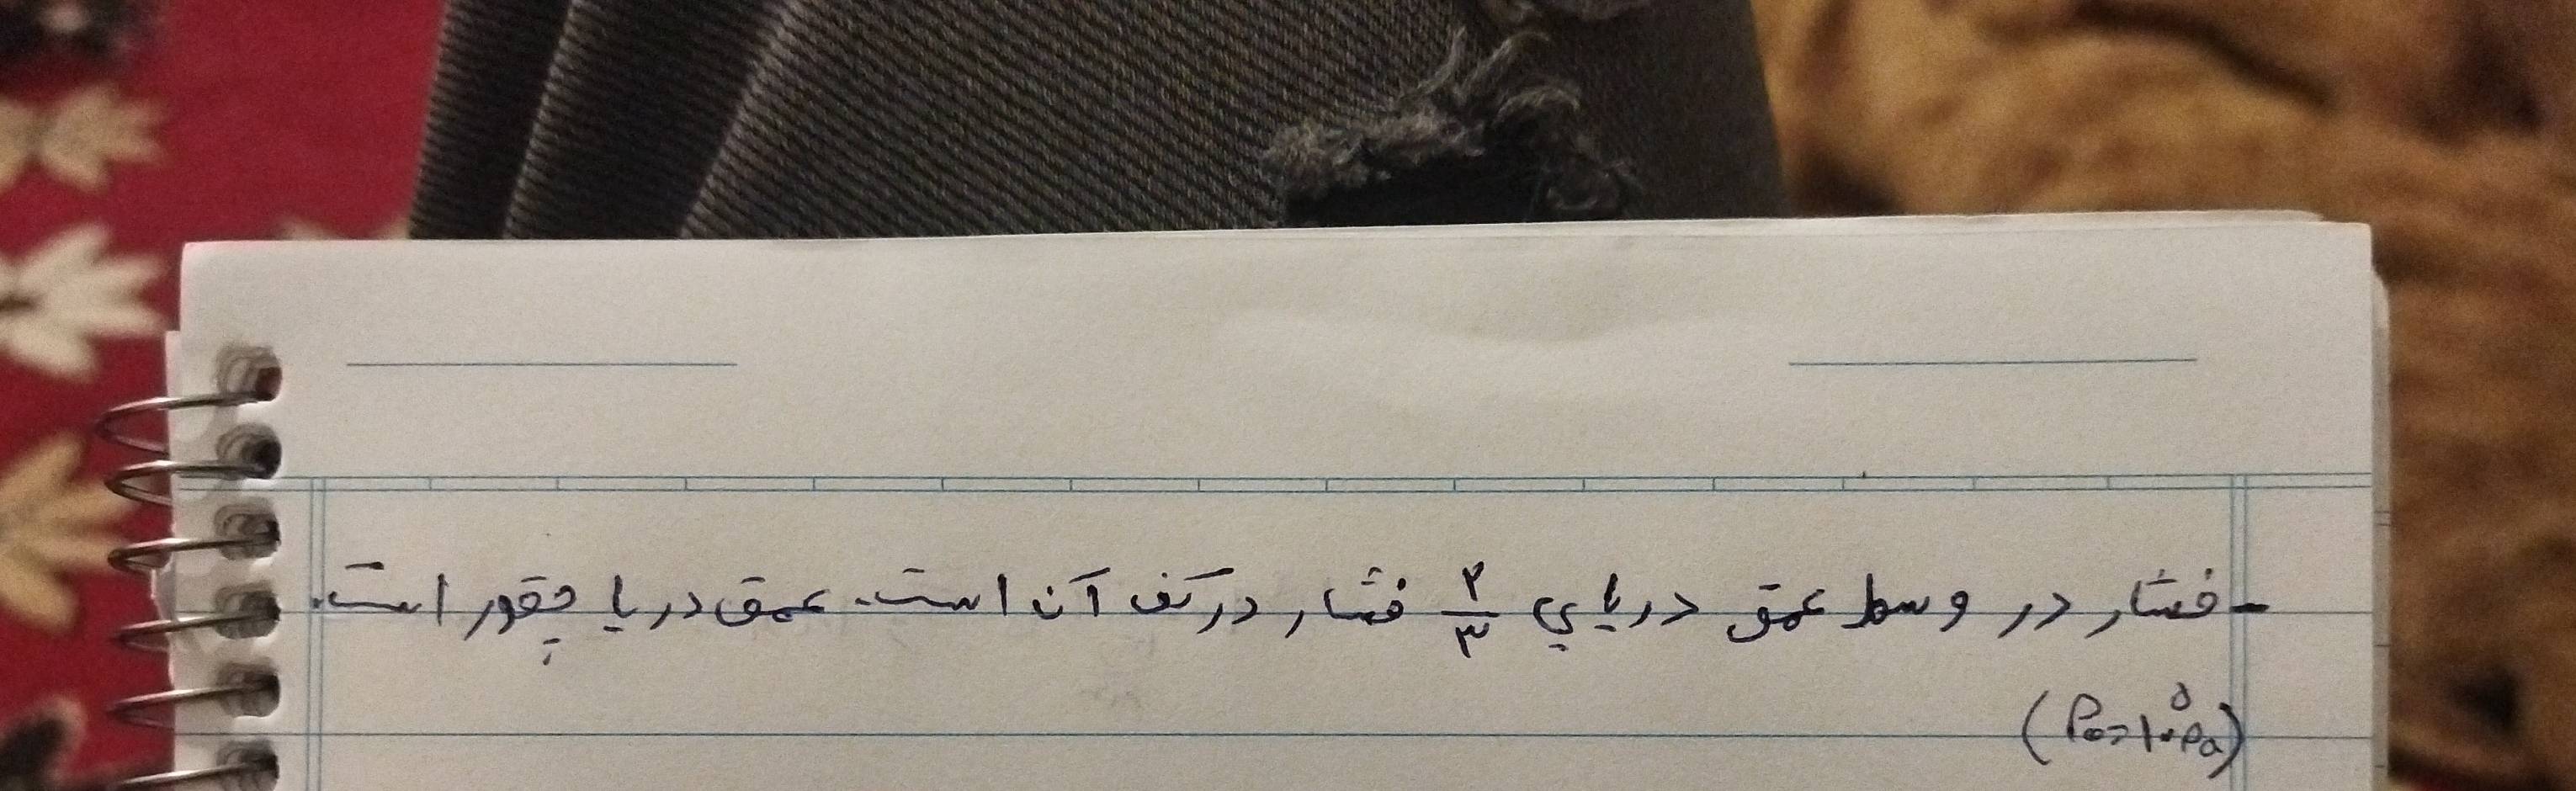 - فشار در وسط عمق دریایی ۲/۳ فشار در کف آن است. عمق دریا چقدر است.
(P₀=۱۰⁵ Pa)